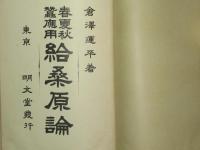 倉澤運平著
春夏秋
蠶應用
給桑原論
東京 明文堂發行